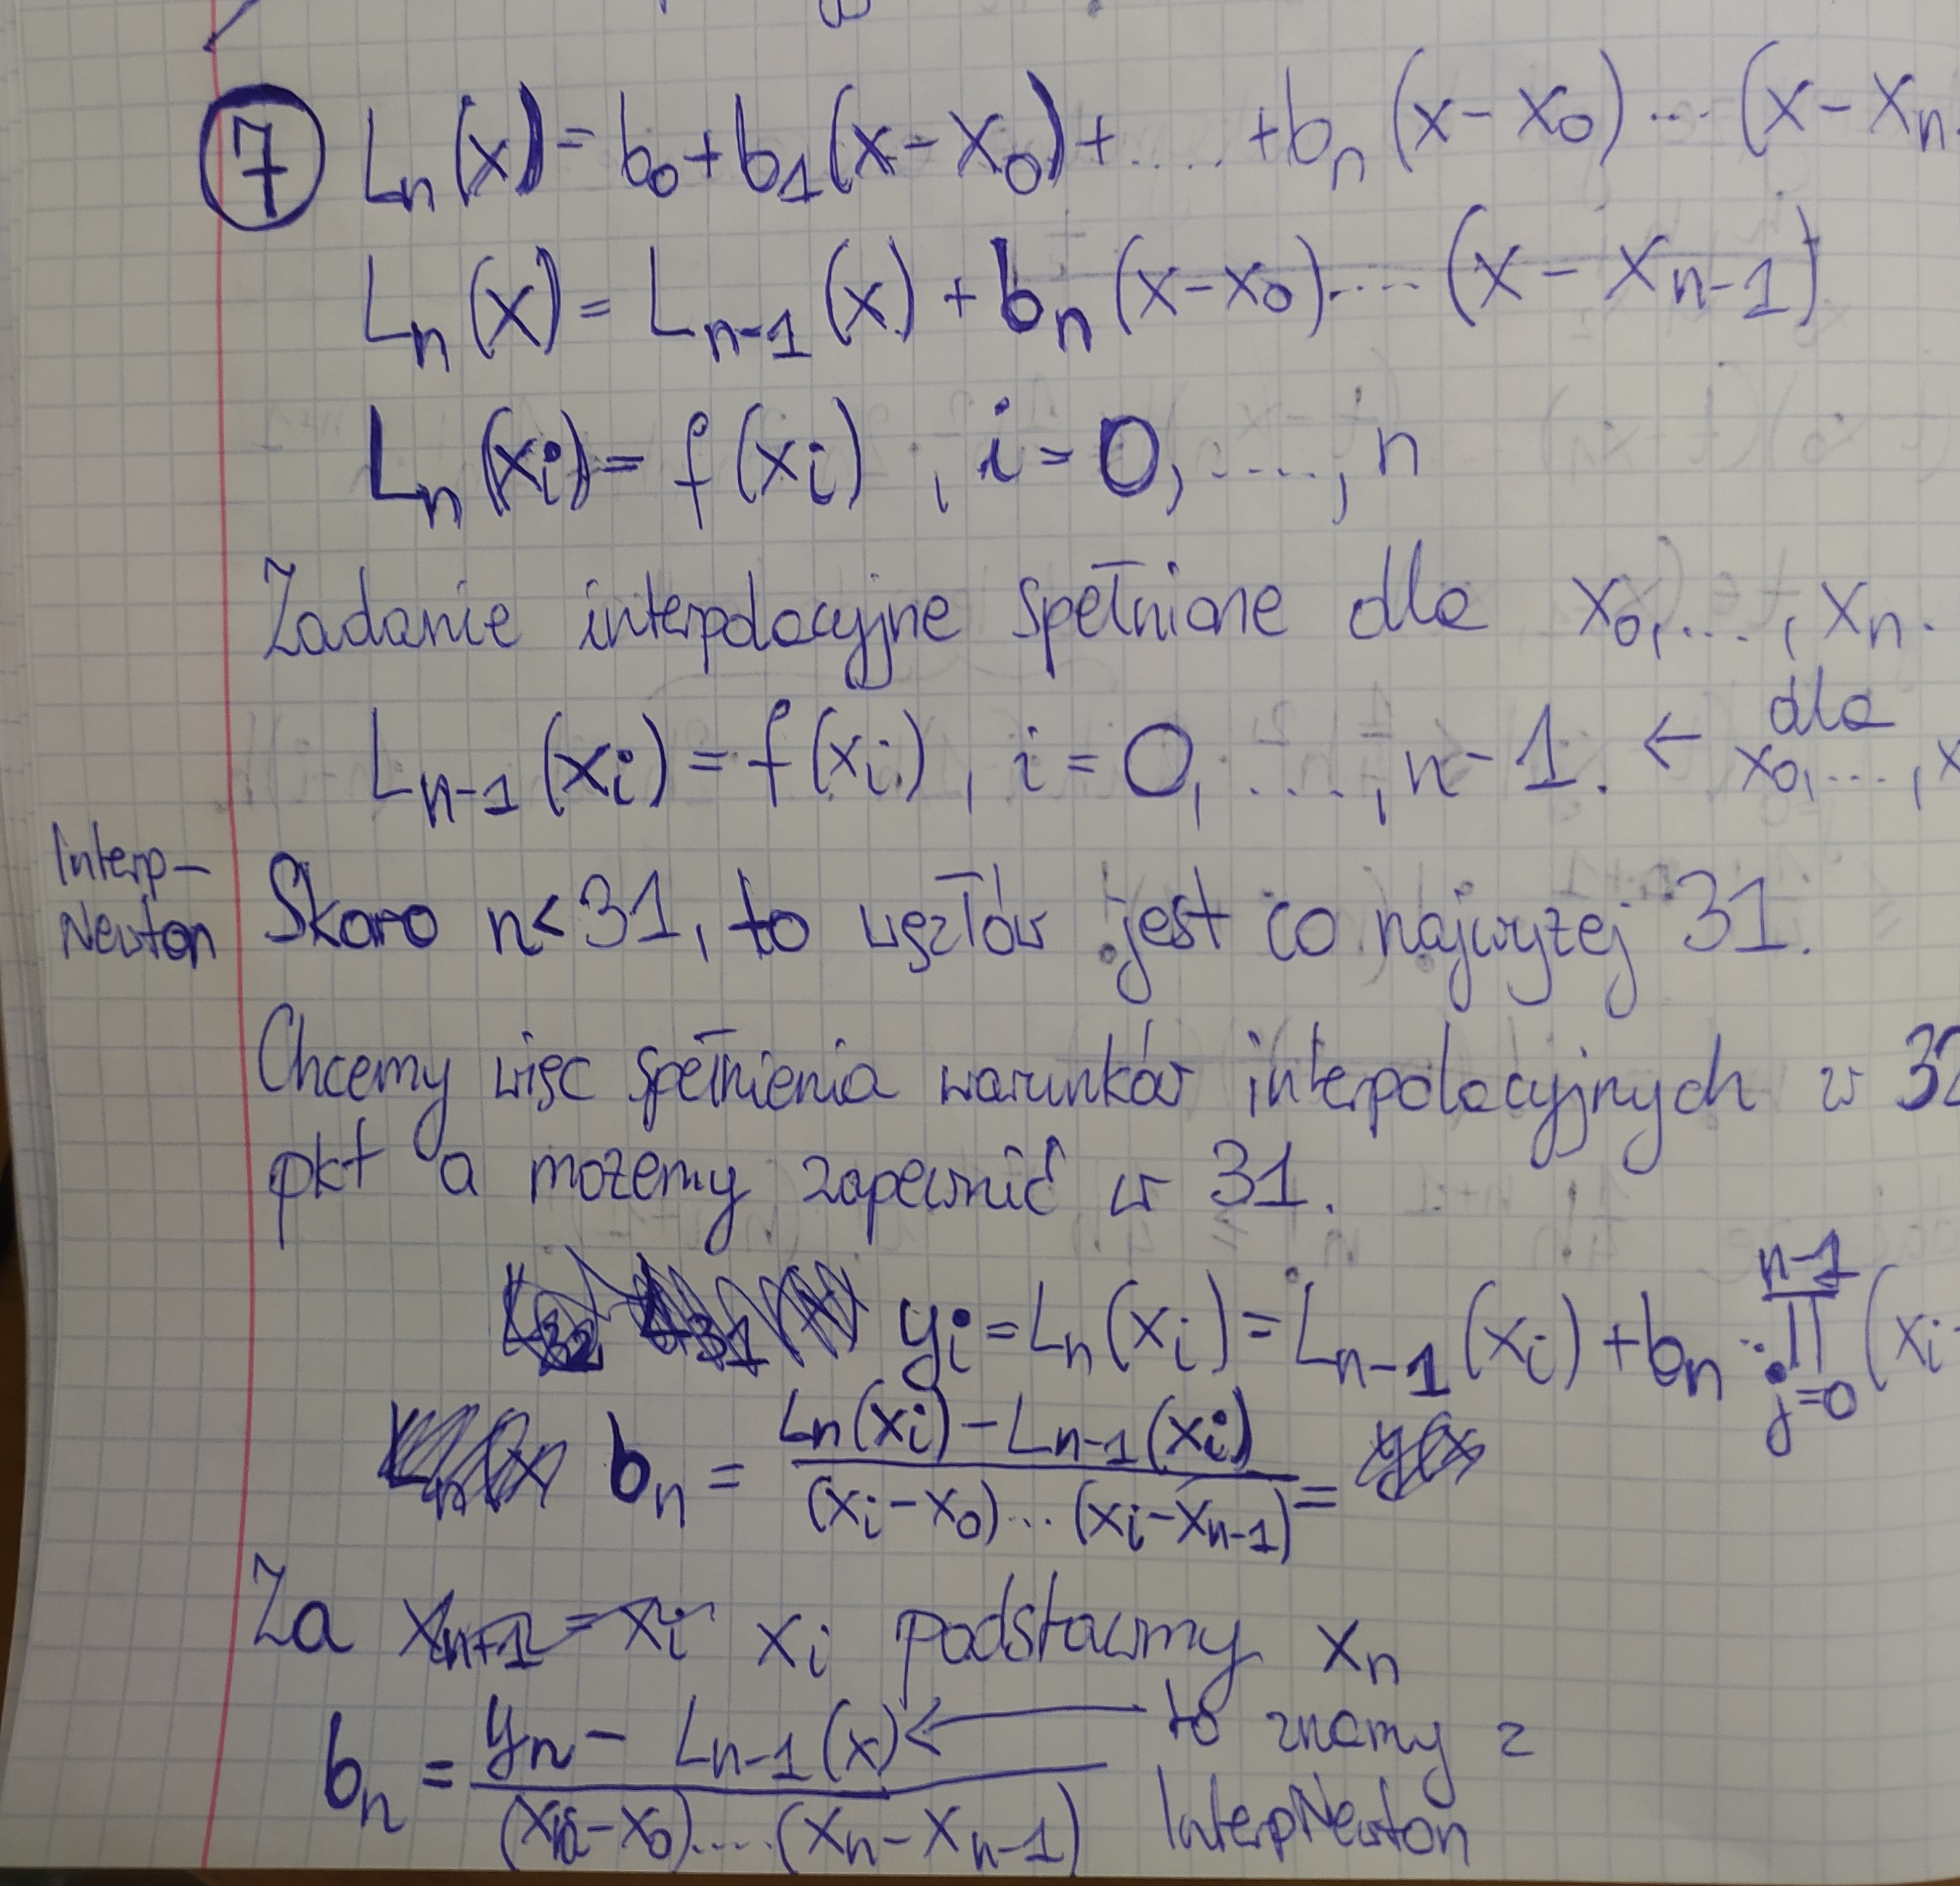 7 Lₙ(x) = b₀ + b₁(x - x₀) + ..... + bₙ(x - x₀) ... (x - xₙ
Lₙ(x) = Lₙ₋₁(x) + bₙ(x - x₀) ..... (x - xₙ₋₁)
Lₙ(xᵢ) = f(xᵢ) , i = 0, ...., n
Zadanie interpolacyjne spełnione dla x₀, ..., xₙ.
Lₙ₋₁(xᵢ) = f(xᵢ) , i = 0, ...., n - 1. ← dla x₀, ..., x
Interp-
Newton
Skoro n < 31, to węzłów jest co najwyżej 31.
Chcemy więc spełnienia warunków interpolacyjnych w 32
pkt a możemy zapewnić w 31.
yᵢ = Lₙ(xᵢ) = Lₙ₋₁(xᵢ) + bₙ · ∏ⱼ₌₀ⁿ⁻¹ (xᵢ -
bₙ = (Lₙ(xᵢ) - Lₙ₋₁(xᵢ)) / ((xᵢ - x₀) ... (xᵢ - xₙ₋₁)) =
Za xₙ₊₁ = xᵢ xᵢ podstawmy xₙ
bₙ = (yₙ - Lₙ₋₁(x)) / ((xₙ - x₀) .... (xₙ - xₙ₋₁)) ← to znamy z
InterpNewton